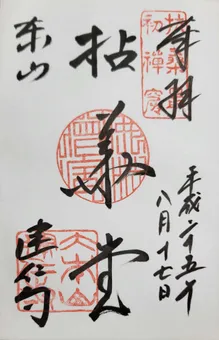 奉拝
扶桑
初禅窟
平成二十五年
八月十七日
拈華堂
東山
建仁寺
大本山